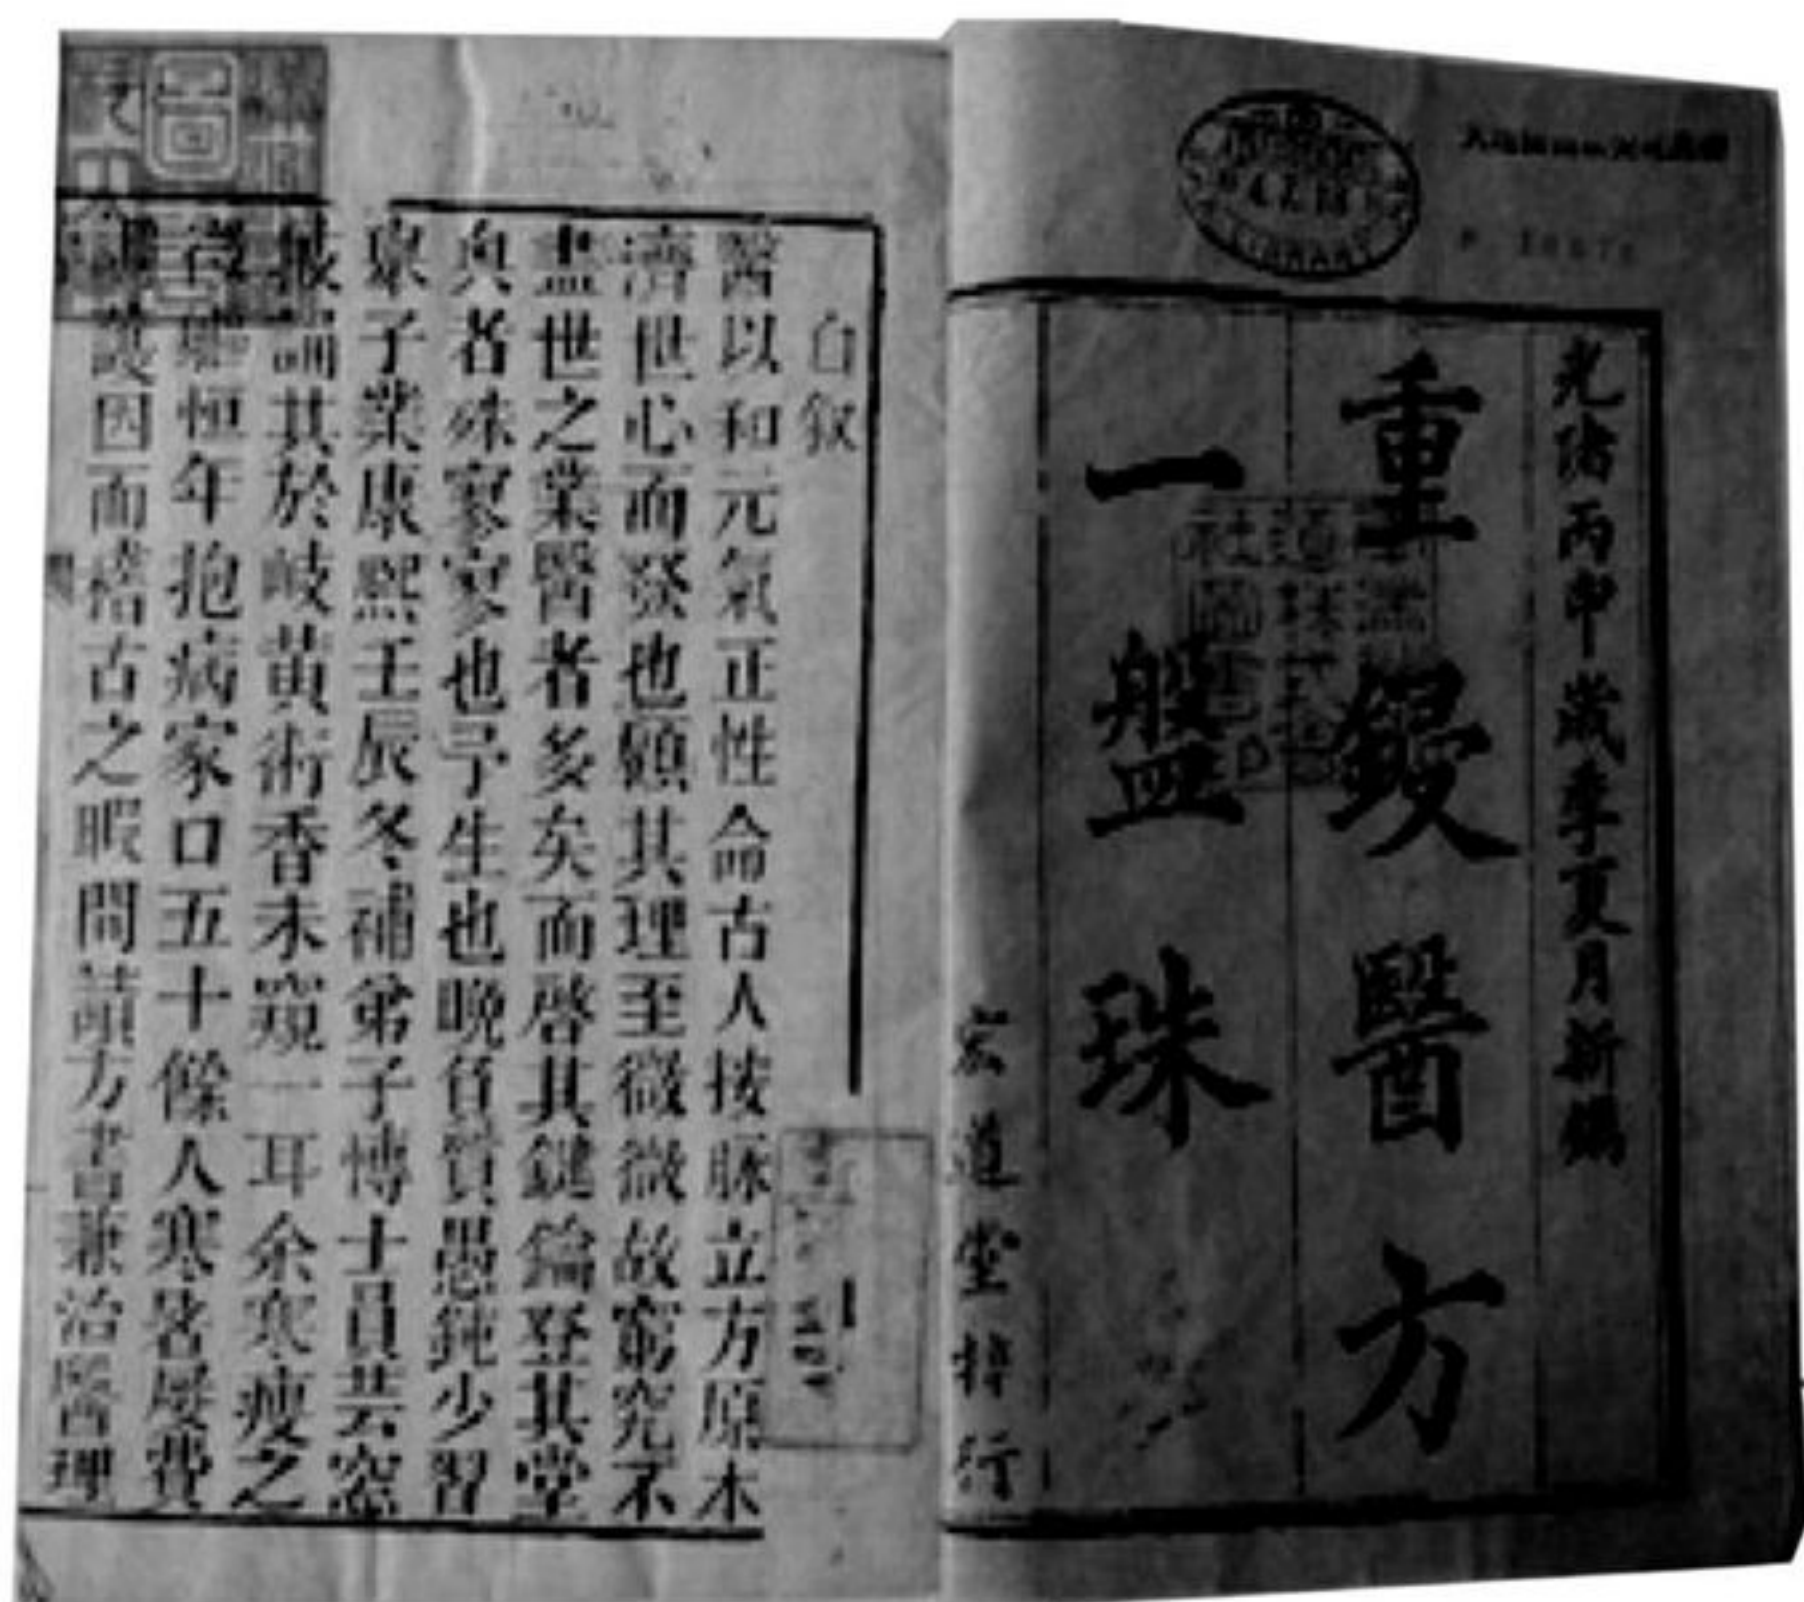 光緒丙申歲季夏月新鐫
重鋟醫方
一盤珠
宏道堂梓行
LIBRARY
自叙
醫以和元氣正性命古人按脉立方原本
濟世心而發也顧其理至微微故窮究不
盡世之業醫者多矣而啓其鍵鑰登其堂
奥者殊寥寥也予生也晚負質愚鈍少習
舉子業康熙壬辰冬補弟子博士員芸窓
披誦其於岐黃術香未窺一耳余寒瘦之
恒年抱病家口五十餘人寒暑屡費
因而稽古之暇間讀方書兼治醫理